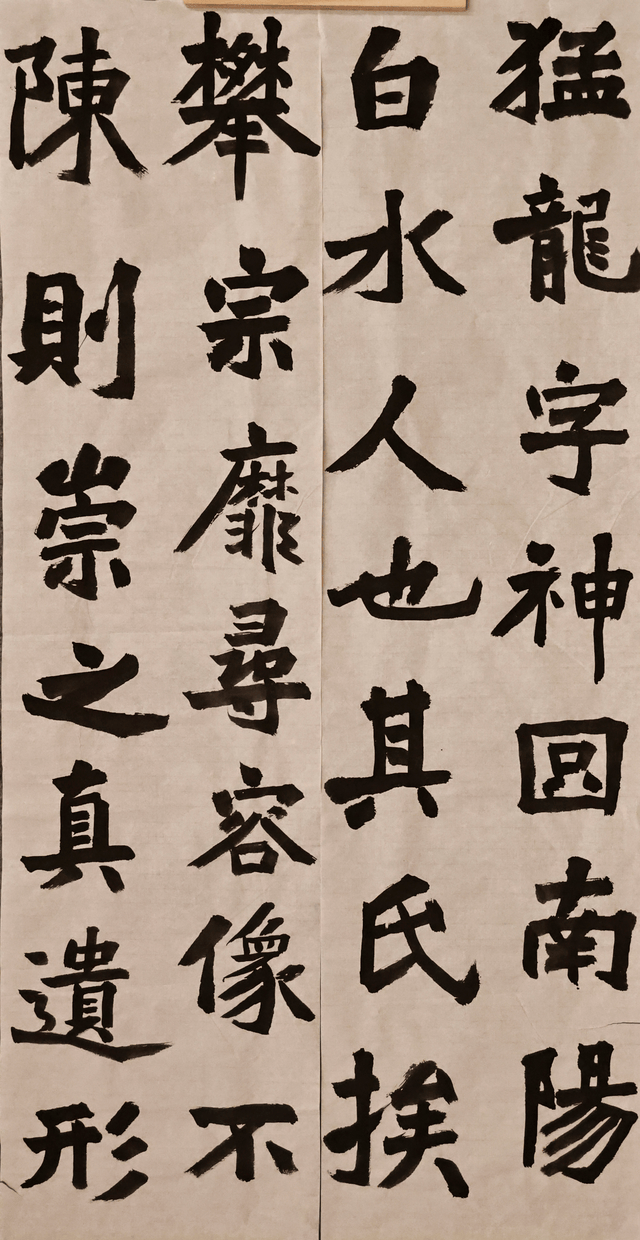 猛龍字神囧南陽
白水人也其氏挨
攀宗靡尋容像不
陳則崇之真遺形